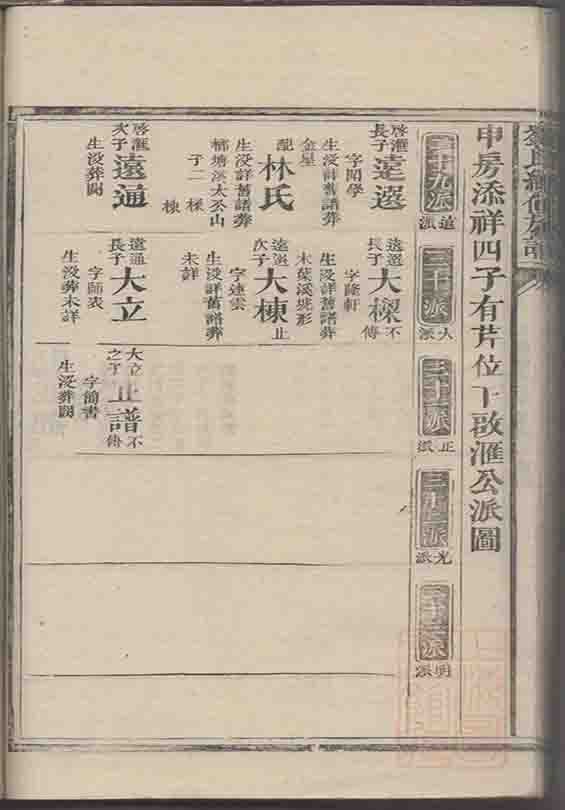 申房添祥四子有芹位下啟滙公派圖
二十九派
遠派
三十派
大派
三十一派
正派
三十二派
光派
三十三派
明派
啓滙長子遠選
字閗學
生没詳舊譜葬
金星
配林氏
生没詳舊譜葬
塘溪太丕山
子二
樑
棟
啓滙次子遠通
生没葬闕
遠選長子大樑不傳
字隆軒
生没詳舊譜葬
木葉溪虎形
遠選次子大棟止
字連雲
生没詳舊譜葬
未詳
遠通長子大立
字師表
生没葬未詳
大立之子正譜不傳
字簡書
生没葬闕